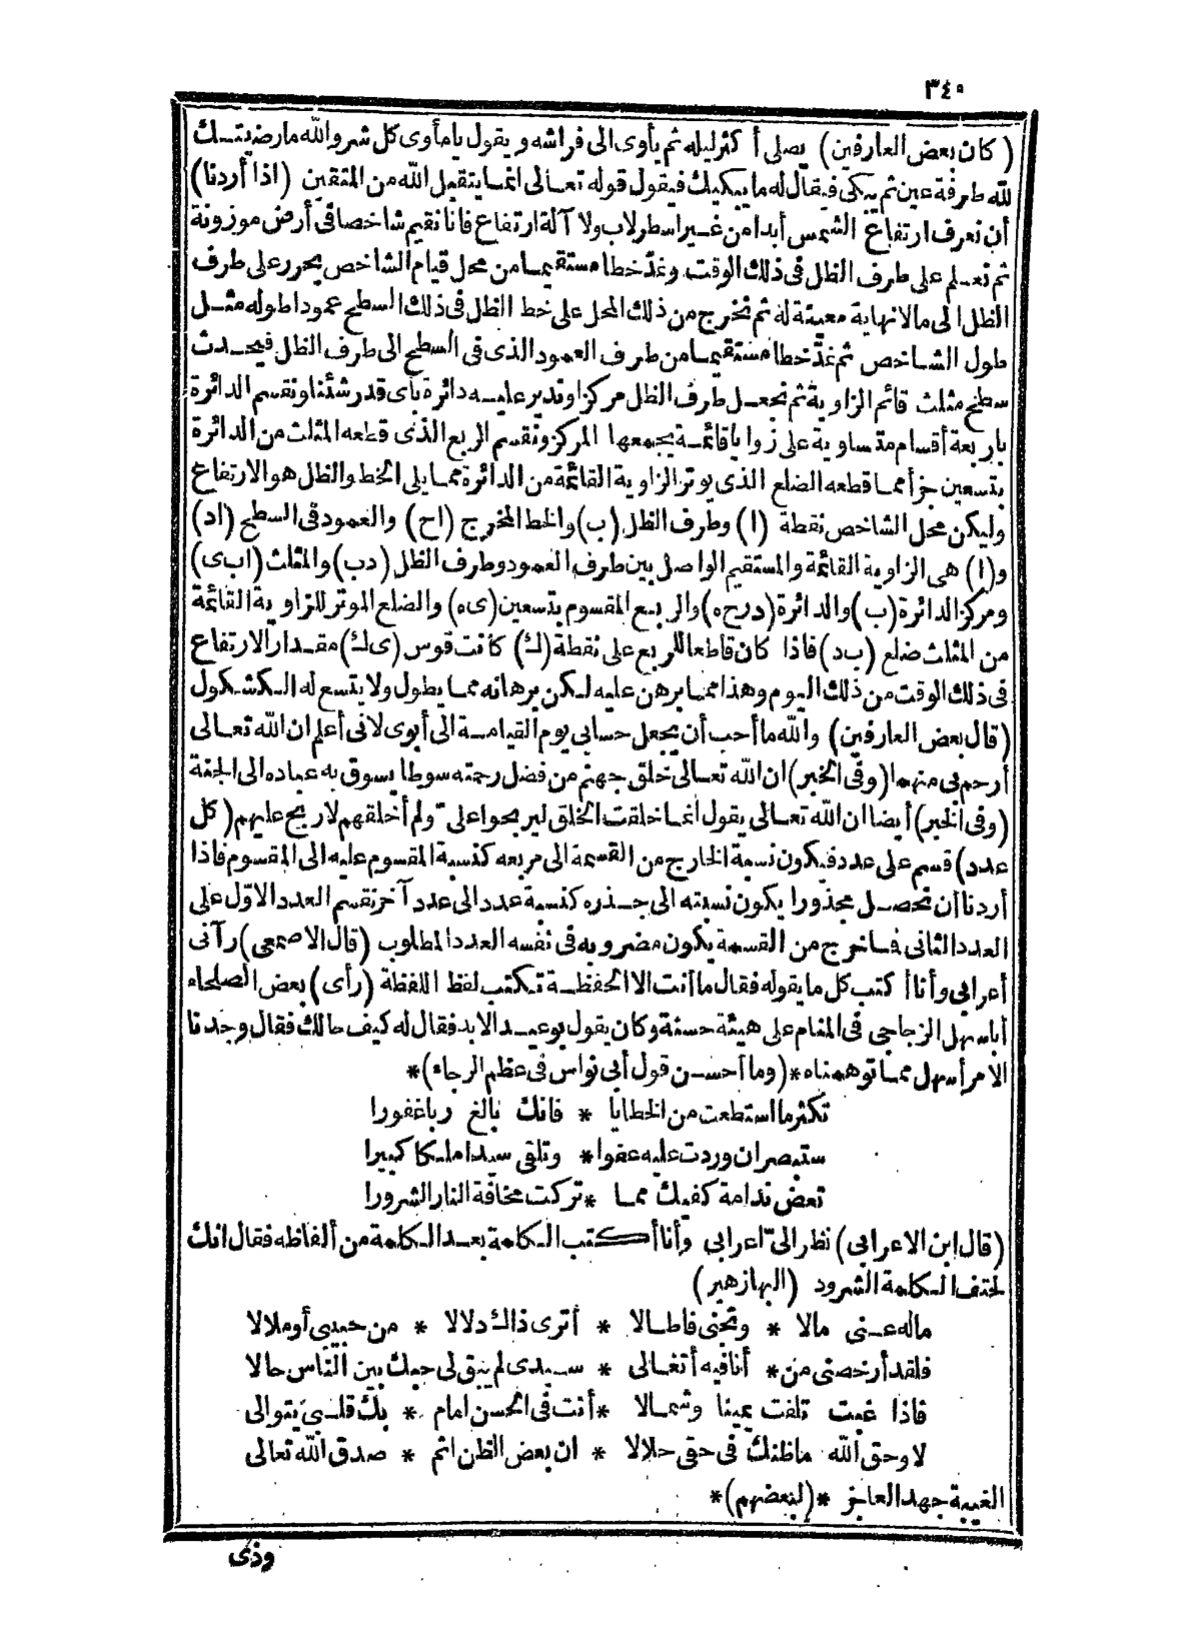 ٣٤٠
(كان بعض العارفين) يصلى أكثر ليله ثم يأوى الى فراشه ويقول يامأوى كل شر والله مارضيتك
لله طرفة عين ثم يبكى فيقال له ما يبكيك فيقول قوله تعالى انما يتقبل الله من المتقين (اذا أردنا)
أن نعرف ارتفاع الشمس أبدا من غير اسطرلاب ولا آلة ارتفاع فانا نقيم شاخصا فى أرض موزونة
ثم نعلم على طرف الظل فى ذلك الوقت ونمد خطا مستقيما من محل قيام الشاخص يجوز على طرف
الظل الى مالا نهاية معينة له ثم نخرج من ذلك المحل على خط الظل فى ذلك السطح عمودا طوله مثل
طول الشاخص ثم نمد خطا مستقيما من طرف العمود الذى فى السطح الى طرف الظل فيحدث
سطح مثلث قائم الزاوية ثم نجعل طرف الظل مركزا وندير عليه دائرة بأى قدر شئنا ونقسم الدائرة
باربعة أقسام متساوية على زوايا قائمة يجمعها المركز ونقسم الربع الذى قطعه المثلث من الدائرة
بتسعين جزأ مما قطعه الضلع الذى يوتر الزاوية القائمة من الدائرة مما يلى الخط والظل هو الارتفاع
وليكن محل الشاخص نقطة (ا) وطرف الظل (ب) والخط المخرج (اح) والعمود فى السطح (اد)
و(ا) هى الزاوية القائمة والمستقيم الواصل بين طرف العمود وطرف الظل (دب) والمثلث (ابى)
ومركز الدائرة (ب) والدائرة (درح٥) والربع المقسوم بتسعين (ى٥) والضلع الموتر للزاوية القائمة
من المثلث ضلع (ب د) فاذا كان قاطعا للربع على نقطة (ك) كانت قوس (ى ك) مقدار الارتفاع
فى ذلك الوقت من ذلك اليوم وهذا مما برهن عليه لكن برهانه مما يطول ولا يتسع له الكشكول
(قال بعض العارفين) والله ما أحب أن يجعل حسابى يوم القيامة الى أبوى لانى أعلم ان الله تعالى
أرحم بى منهما (وفى الخبر) ان الله تعالى خلق جهنم من فضل رحمته سوطا يسوق به عباده الى الجنة
(وفى الخبر) أيضا ان الله تعالى يقول انما خلقت الخلق ليربحوا علىّ ولم أخلقهم لاربح عليهم (كل
عدد) قسم على عدد فيكون نسبة الخارج من القسمة الى مربعه كنسبة المقسوم عليه الى المقسوم فاذا
أردنا أن نحصل مجذورا يكون نسبته الى جذره كنسبة عدد الى عدد آخر نقسم العدد الاوّل على
العدد الثانى فما خرج من القسمة يكون مضروبه فى نفسه العدد المطلوب (قال الاصمعى) رآنى
أعرابى وأنا أكتب كل ما يقوله فقال ما أنت الا الحفظة تكتب لفظ اللفظة (رأى) بعض الصلحاء
أباسهل الزجاجى فى المنام على هيئة حسنة وكان يقول بوعيد الابد فقال له كيف حالك فقال وجدنا
الامر أسهل مما توهمناه * (وما أحسن قول أبى نواس فى عظم الرجاء) *
تكثر ما استطعت من الخطايا * فانك بالغ ربا غفورا
ستبصر ان وردت عليه عفوا * وتلقى سيدا ملكا كبيرا
تعض ندامة كفيك مما * تركت مخافة النار الشرورا
(قال ابن الاعرابى) نظر الىّ اعرابى وأنا أكتب الكلمة بعد الكلمة من ألفاظه فقال انك
لحتف الكلمة الشرود (البهازهير)
ماله عنى مالا * وتجنى فاطالا * أترى ذاك دلالا * من حبيبى أو ملالا
فلقد أرخصنى من * أنا فيه أتغالى * سيدى لم يبق لى حبك بين الناس حالا
فاذا غبت تلفت يمينا وشمالا * أنت فى الحسن امام * بك قلبى يتوالى
لا وحق الله ماظنك فى حقى حلالا * ان بعض الظن اثم * صدق الله تعالى
الغيبة جهد العاجز * (لبعضهم) *
وذى